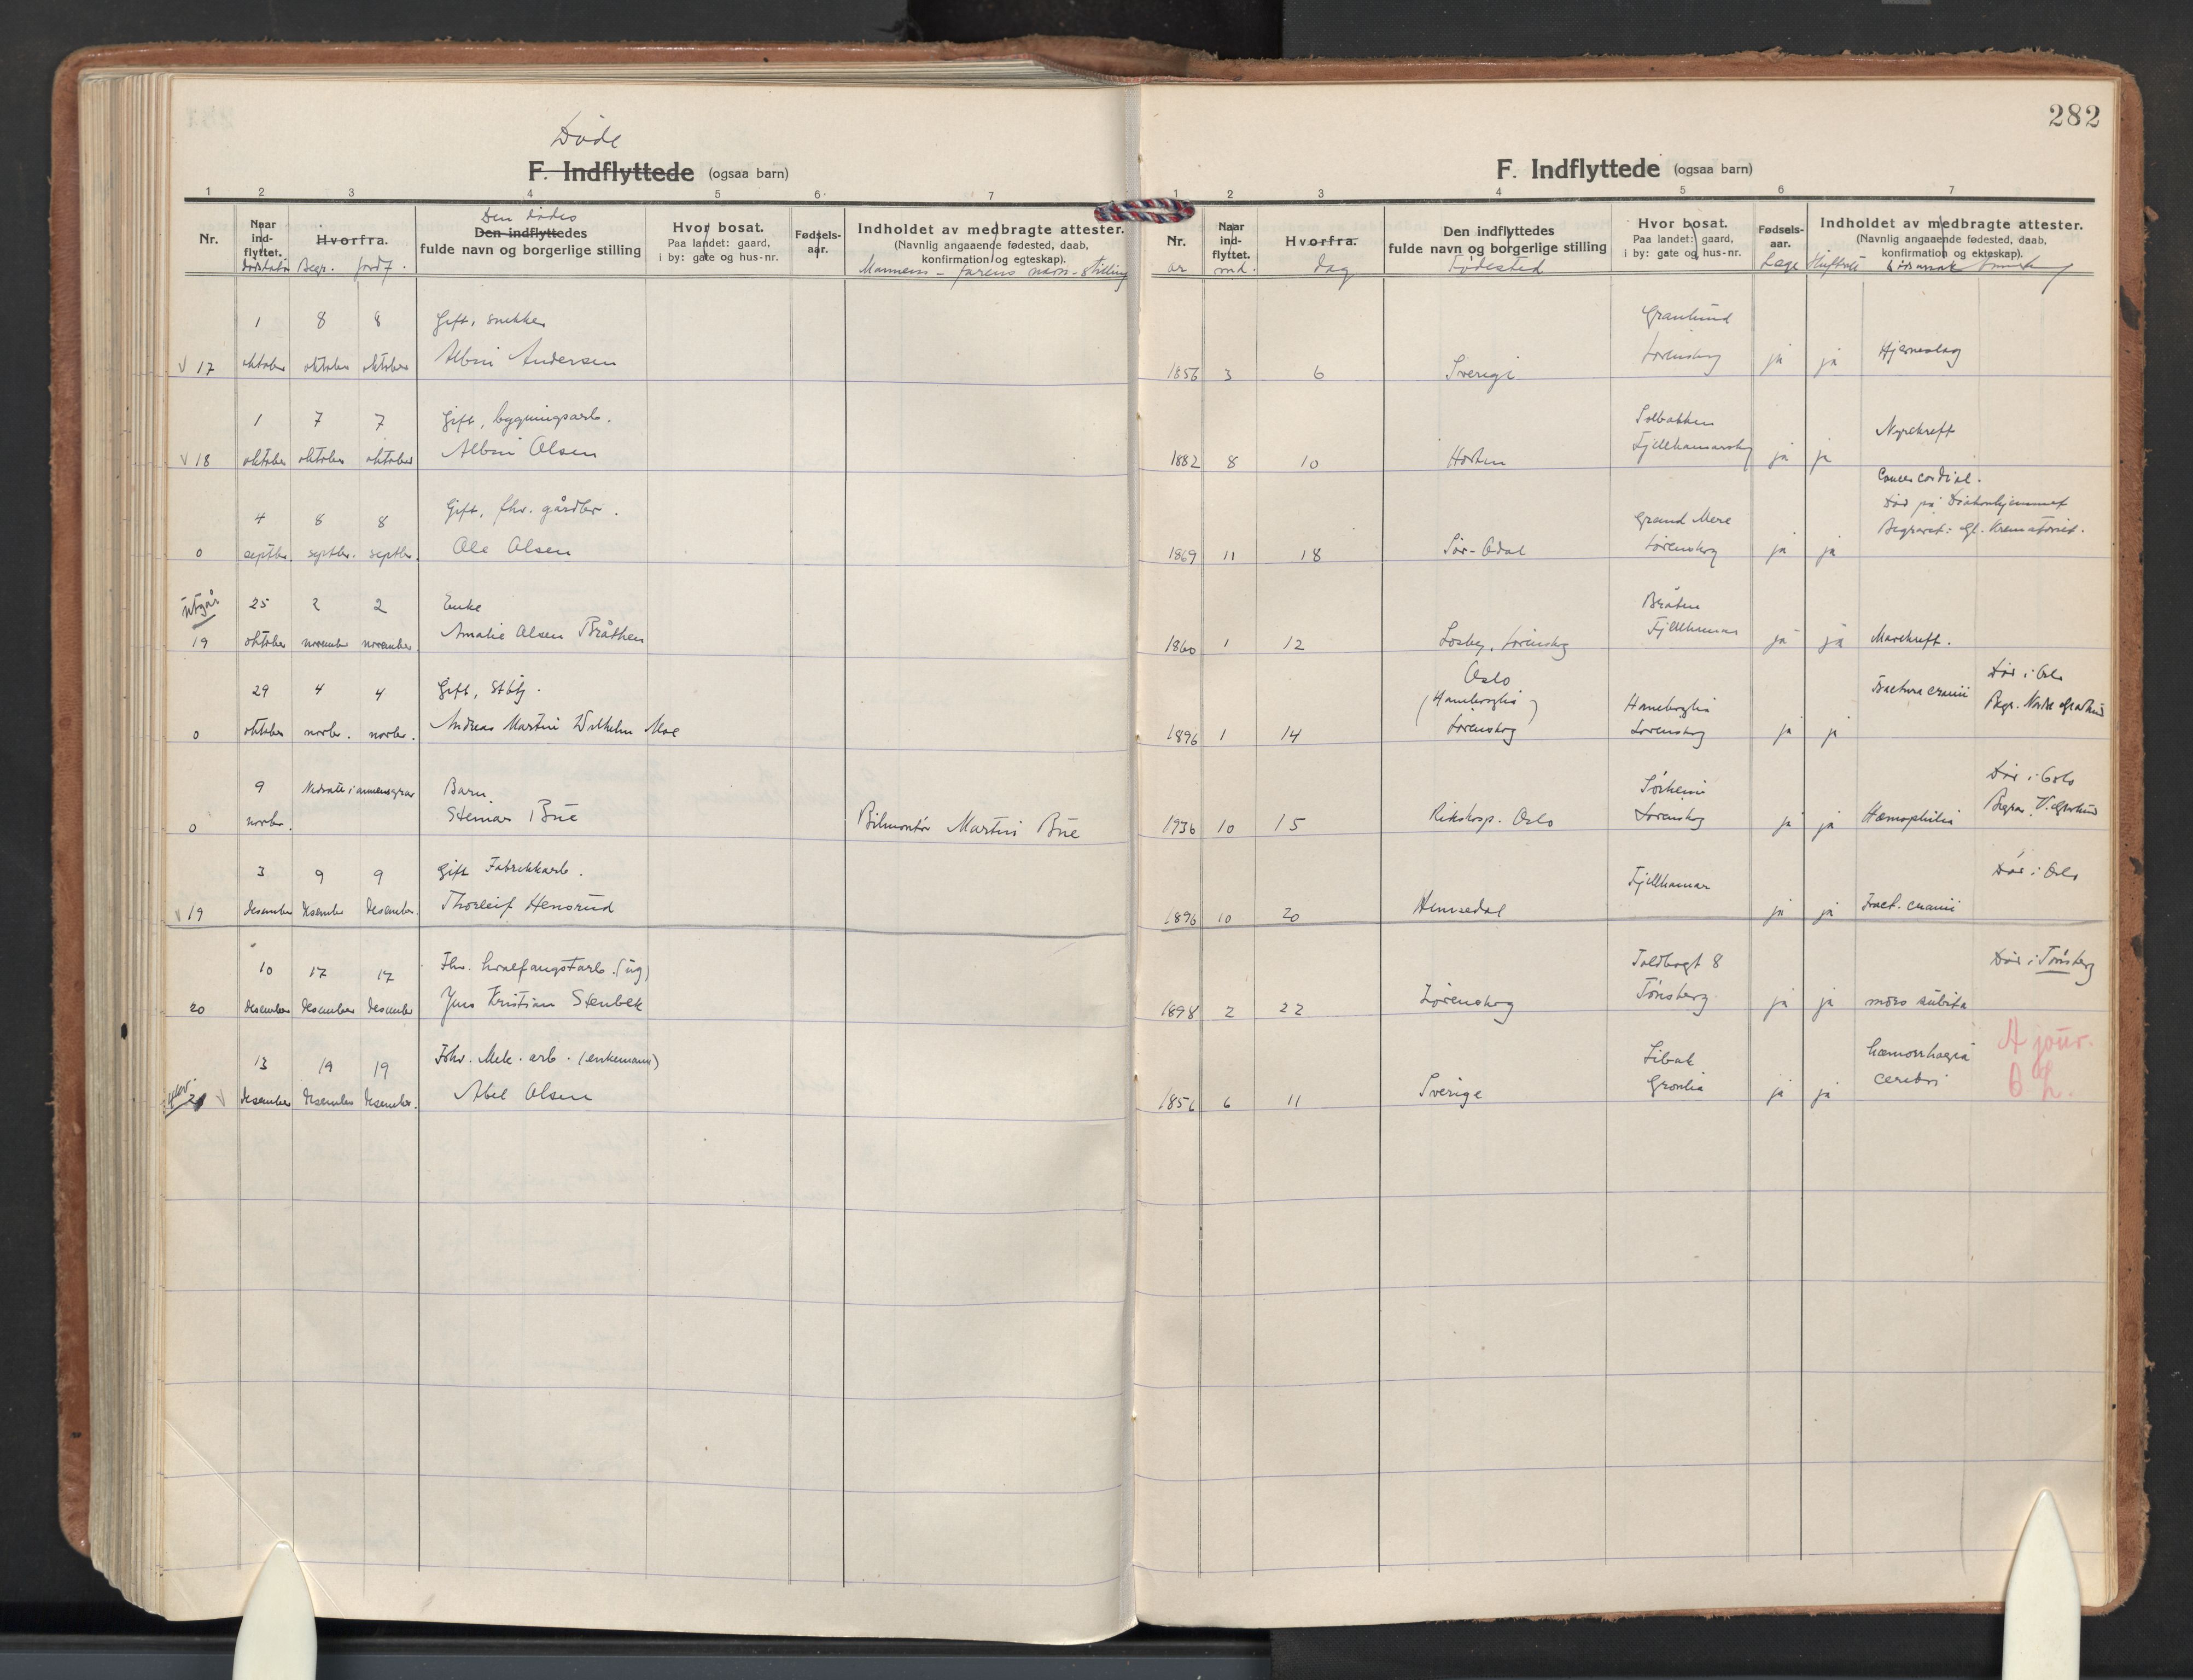 282
Døde
F. Indflyttede (ogsaa barn)
1 2 3 4 5 6 7
Nr.
Naar ind-flyttet.
Hvorfra.
Begr. jordf.
Den dødes
Den indflyttedes
fulde navn og borgerlige stilling
Hvor bosat.
Paa landet: gaard,
i by: gate og hus-nr.
Fødsels-aar.
Indholdet av medbragte attester.
(Navnlig angaaende fødested, daab,
konfirmation og egteskap).
Mannens - farens navn - stilling
1 8 8 Gift, snekker
17 oktober oktober oktober Albin Andersen
1 7 7 Gift, bygningsarb.
18 oktober oktober oktober Albin Olsen
4 8 8 Gift, fhv. gårdbr.
0 septbr. septbr. septbr. Ole Olsen
Utgår 25 2 2 Enke
19 oktober november november Amalie Olsen Bråthen
29 4 4 Gift,
0 oktober novbr. novbr. Andreas Martin Wilhelm Moe
9 Nedsatt i annens grav Barn
0 novbr. Steinar Bue Bilmontør Martin Bue
3 9 9 Gift Fabrikkarb.
19 desember desember desember. Thorleif Hensrud
10 17 17 Fhv. hvalfangstarb. (ug)
20 desember desember desember Jens Kristian Stenbek
13 19 19 Fhv. Mek. arb. (enkemann)
21 desember desember desember. Abel Olsen
F. Indflyttede (ogsaa barn)
1 2 3 4 5 6 7
Nr.
år
Naar ind-flyttet.
md.
Hvorfra.
dag
Den indflyttedes
fulde navn og borgerlige stilling
Fødested
Hvor bosat.
Paa landet: gaard,
i by: gate og hus-nr.
Fødsels-aar.
Læge Skifterett
Indholdet av medbragte attester.
(Navnlig angaaende fødested, daab,
konfirmation og ekteskap).
Dødsårsak
Granlund
1856 3 6 Sverige Lørenskog ja ja Hjerneslag
Solbakken
1882 8 10 Horten Fjellhamarskog ja ja Nyrekreft
Cancer cordial.
Død på Diakonhjemmet
Grand Mere Begravet: Gl. Krematoriet.
1869 11 18 Sør-Odal Lørenskog ja ja
Bråten
1860 1 12 Losby, Lørenskog Fjellhamar ja ja Mavekreft.
Oslo
(Haneborglia) Haneborglia Fractura cranii Død i Oslo
1896 1 14 Lørenskog Lørenskog ja ja Begr. Nordre Gravlund
Sørheim Død i Oslo
1936 10 15 Rikshosp. Oslo Lørenskog ja ja Hæmophilia Begrav. V. Gravlund
Fjellhamar Død i Oslo
1896 10 20 Hemsedal ja ja Fract. cranii
Toldbogt 8 Død i Tønsberg
1898 2 22 Lørenskog Tønsberg ja ja mors subita
Libak hæmorrhagia A jour.
1856 6 11 Sverige Grønlia ja ja cerebri O L.